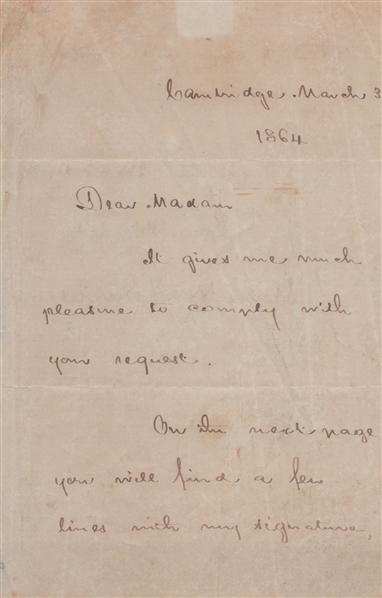 Cambridge. March 3
1864
Dear Madam
It gives me much
pleasure to comply with
your request.
On the next page
you will find a few
lines with my signature,